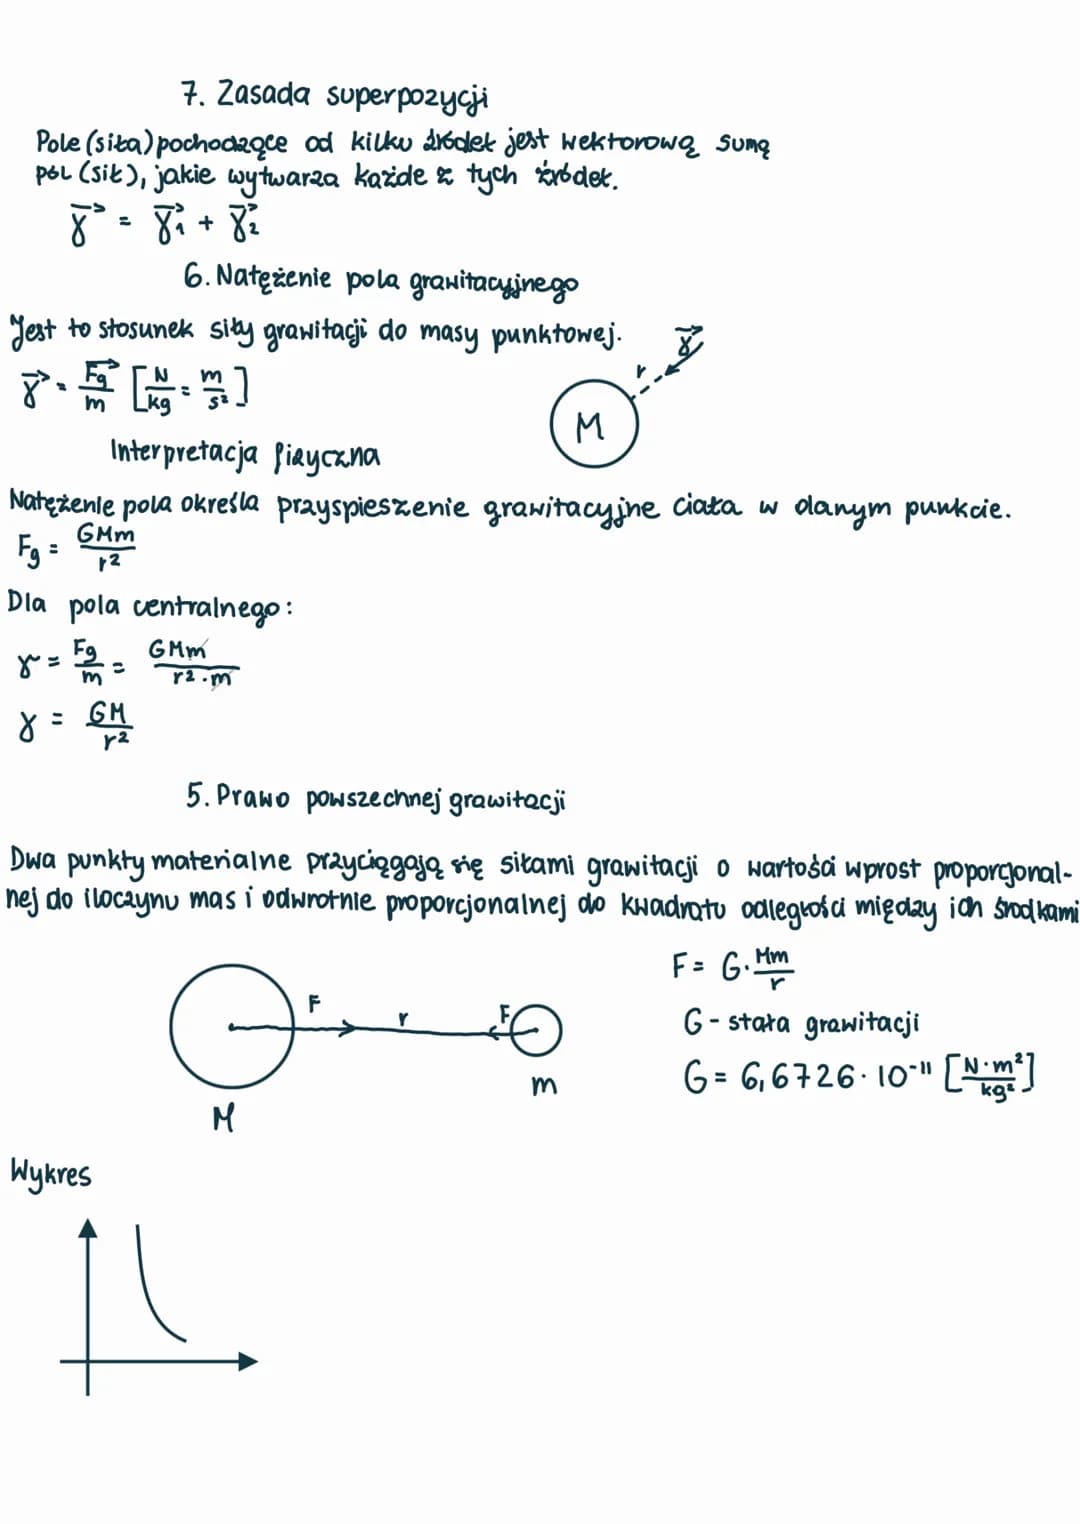 7. Zasada superpozycji
Pole (siła) pochodzące od kilku źródeł jest wektorową sumą
pól (sił), jakie wytwarza każde z tych źródeł.
γ⃗ = γ⃗₁ + γ⃗₂
6. Natężenie pola grawitacyjnego
Jest to stosunek siły grawitacji do masy punktowej.
γ⃗ = F⃗g/m [N/kg = m/s²]
γ⃗
r
M
Interpretacja fizyczna
Natężenie pola określa przyspieszenie grawitacyjne ciała w danym punkcie.
Fg = GMm/r²
Dla pola centralnego:
γ = Fg/m = GMm/r²·m
γ = GM/r²
5. Prawo powszechnej grawitacji
Dwa punkty materialne przyciągają się siłami grawitacji o wartości wprost proporcjonal-
nej do iloczynu mas i odwrotnie proporcjonalnej do kwadratu odległości między ich środkami
F = G·Mm/r
F r F
G - stała grawitacji
G = 6,6726·10⁻¹¹ [N·m²/kg²]
m
M
Wykres